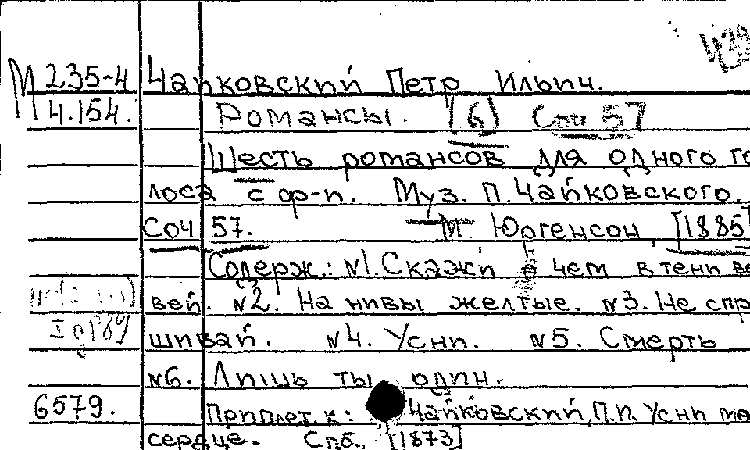 М 235-4 Чайковский Петр Ильич.
4.154. Романсы. (6) Соч 57
Шесть романсов для одного го
лоса с ф-п. Муз. П. Чайковского.
Соч 57. М. Юргенсон [1885]
Содерж.: №1. Скажи о чем в тени ве
вей. №2. На нивы желтые. №3. Не спра
шивай. №4. Усни. №5. Смерть
№6. Лишь ты один.
6579. Приплет. к: Чайковский, П.И. Усни
сердце. Спб. [1873]